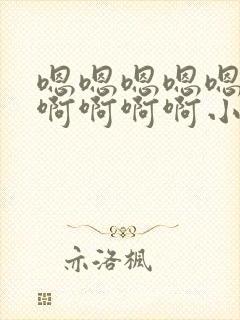 嗯嗯嗯嗯嗯
啊啊啊啊小
亦洛枫